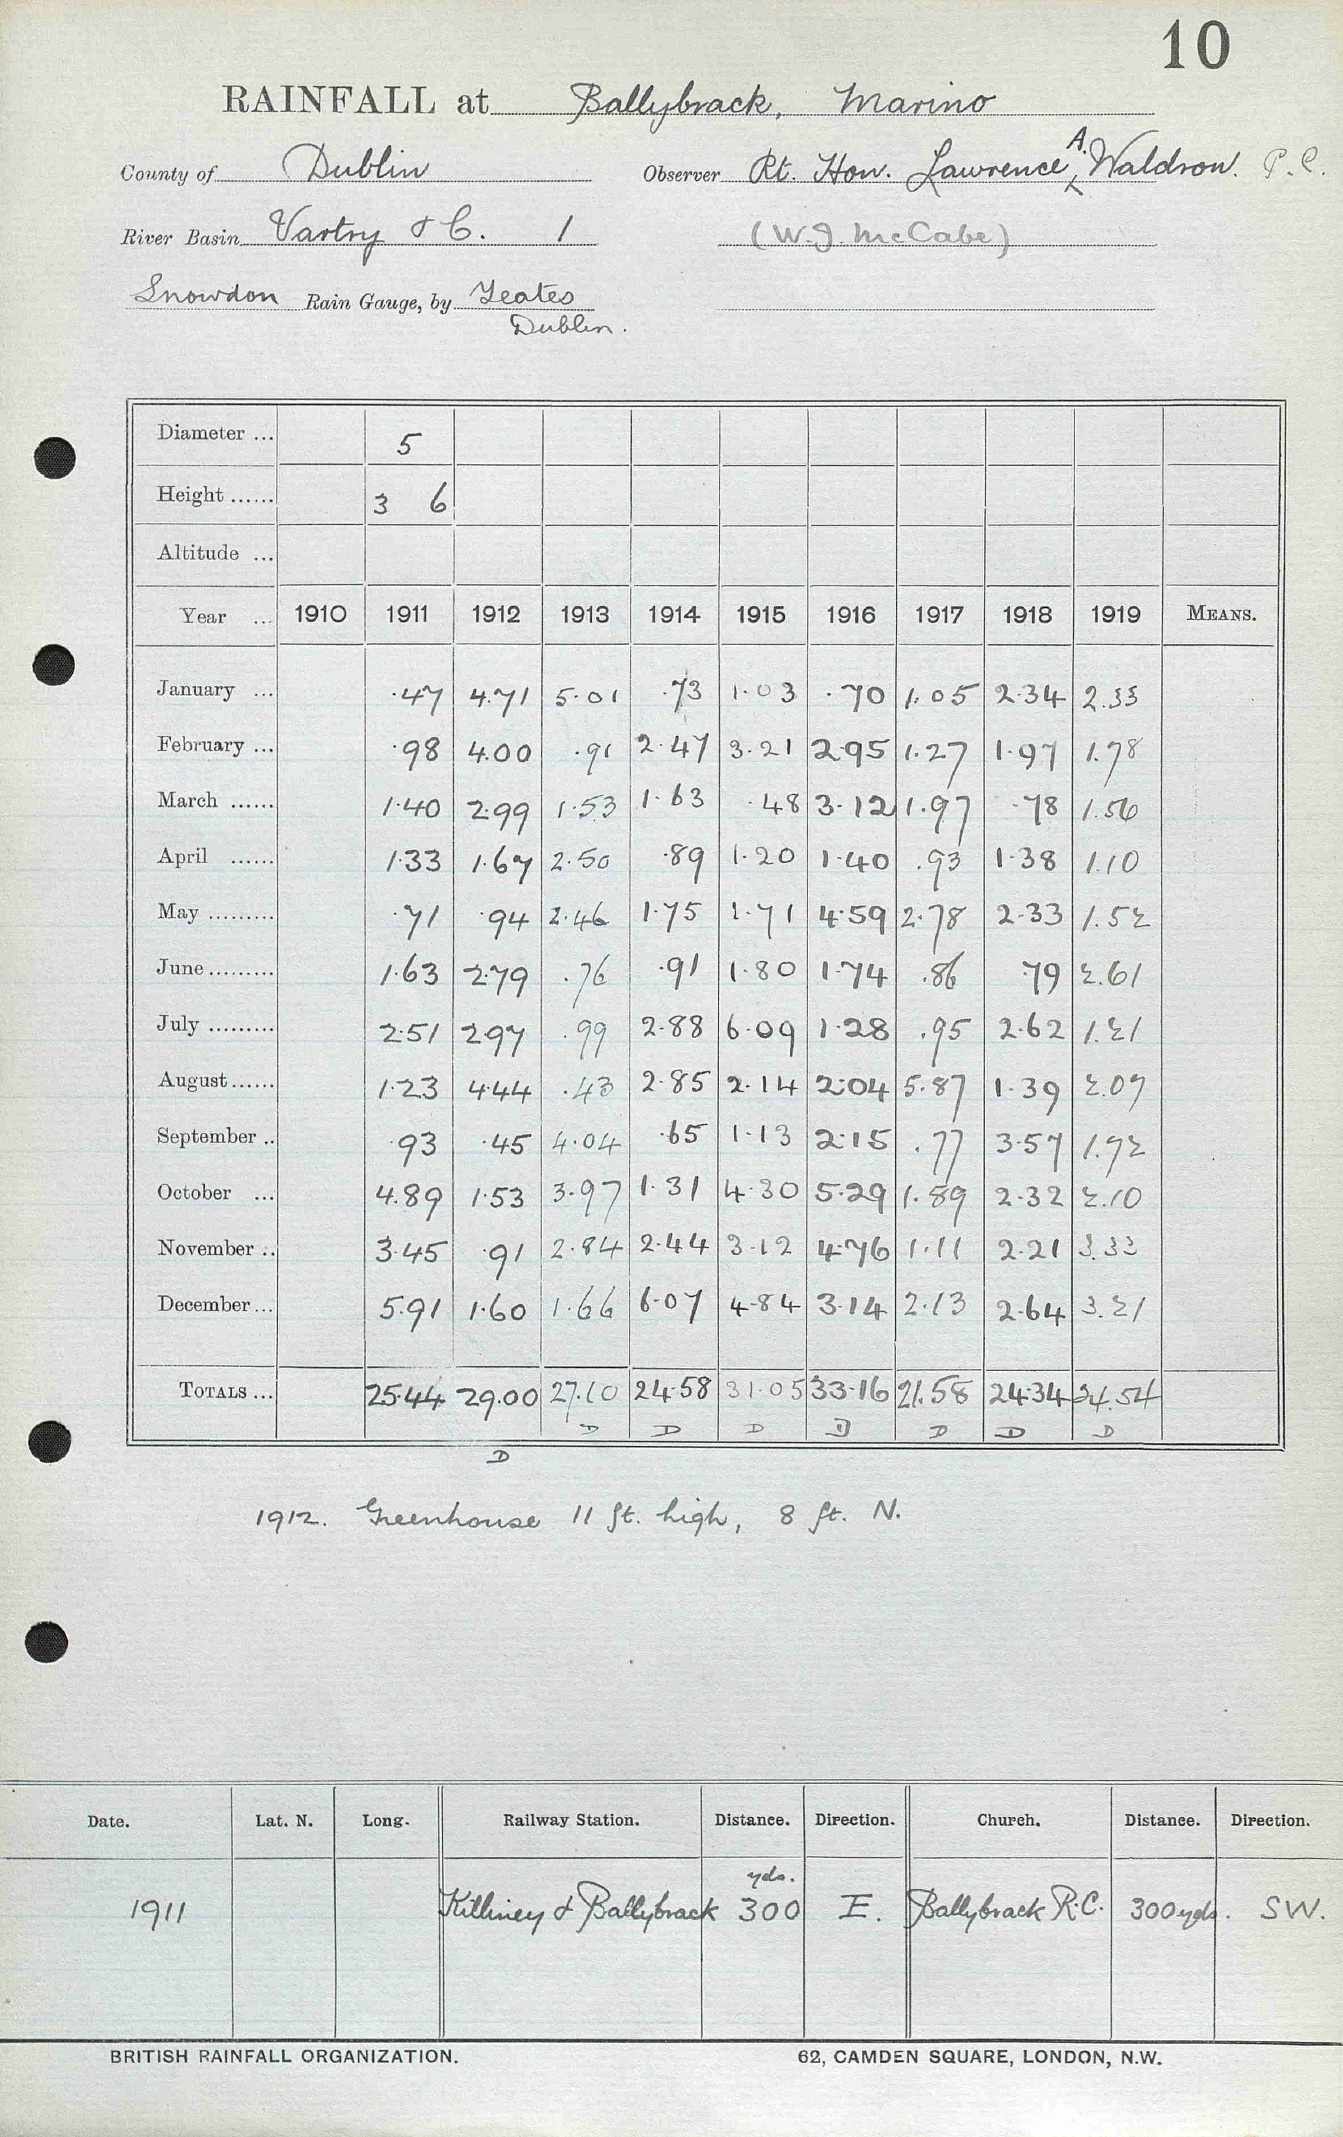 10
RAINFALL at Ballybrack, Marino
County of Dublin Observer Rt. Hon. Lawrence A. Waldron. P.C.
River Basin Vartry & C. 1 (W.J. McCabe)
Snowdon Rain Gauge, by Yeates
Dublin.
Diameter ... 5
Height ...... 3 6
Altitude ...
Year ... 1910 1911 1912 1913 1914 1915 1916 1917 1918 1919 MEANS.
January ... ·47 4.71 5.01 ·73 1.03 ·70 1.05 2.34 2.33
February ... ·98 4.00 ·91 2.47 3.21 2.95 1.27 1.97 1.78
March ...... 1.40 2.99 1.53 1.63 ·48 3.12 1.97 ·78 1.56
April ...... 1.33 1.67 2.50 ·89 1.20 1.40 .93 1.38 1.10
May ......... ·71 ·94 2.46 1.75 1.71 4.59 2.78 2.33 1.52
June ......... 1.63 2.79 .76 ·91 1.80 1.74 .86 ·79 2.61
July ......... 2.51 2.97 .99 2.88 6.09 1.28 .95 2.62 1.21
August ...... 1.23 4.44 .43 2.85 2.14 2.04 5.87 1.39 2.07
September .. ·93 ·45 4.04 ·65 1.13 2.15 .77 3.57 1.72
October ... 4.89 1.53 3.97 1.31 4.30 5.29 1.89 2.32 2.10
November .. 3.45 ·91 2.84 2.44 3.12 4.76 1.11 2.21 3.33
December ... 5.91 1.60 1.66 6.07 4.84 3.14 2.13 2.64 3.21
TOTALS ... 25.44 29.00 27.10 24.58 31.05 33.16 21.58 24.34 24.54
D D D D D D D
D
1912. Greenhouse 11 ft. high, 8 ft. N.
Date. Lat. N. Long. Railway Station. Distance. Direction. Church. Distance. Direction.
yds.
1911 Killiney & Ballybrack 300 E. Ballybrack R.C. 300 yds. SW.
BRITISH RAINFALL ORGANIZATION. 62, CAMDEN SQUARE, LONDON, N.W.